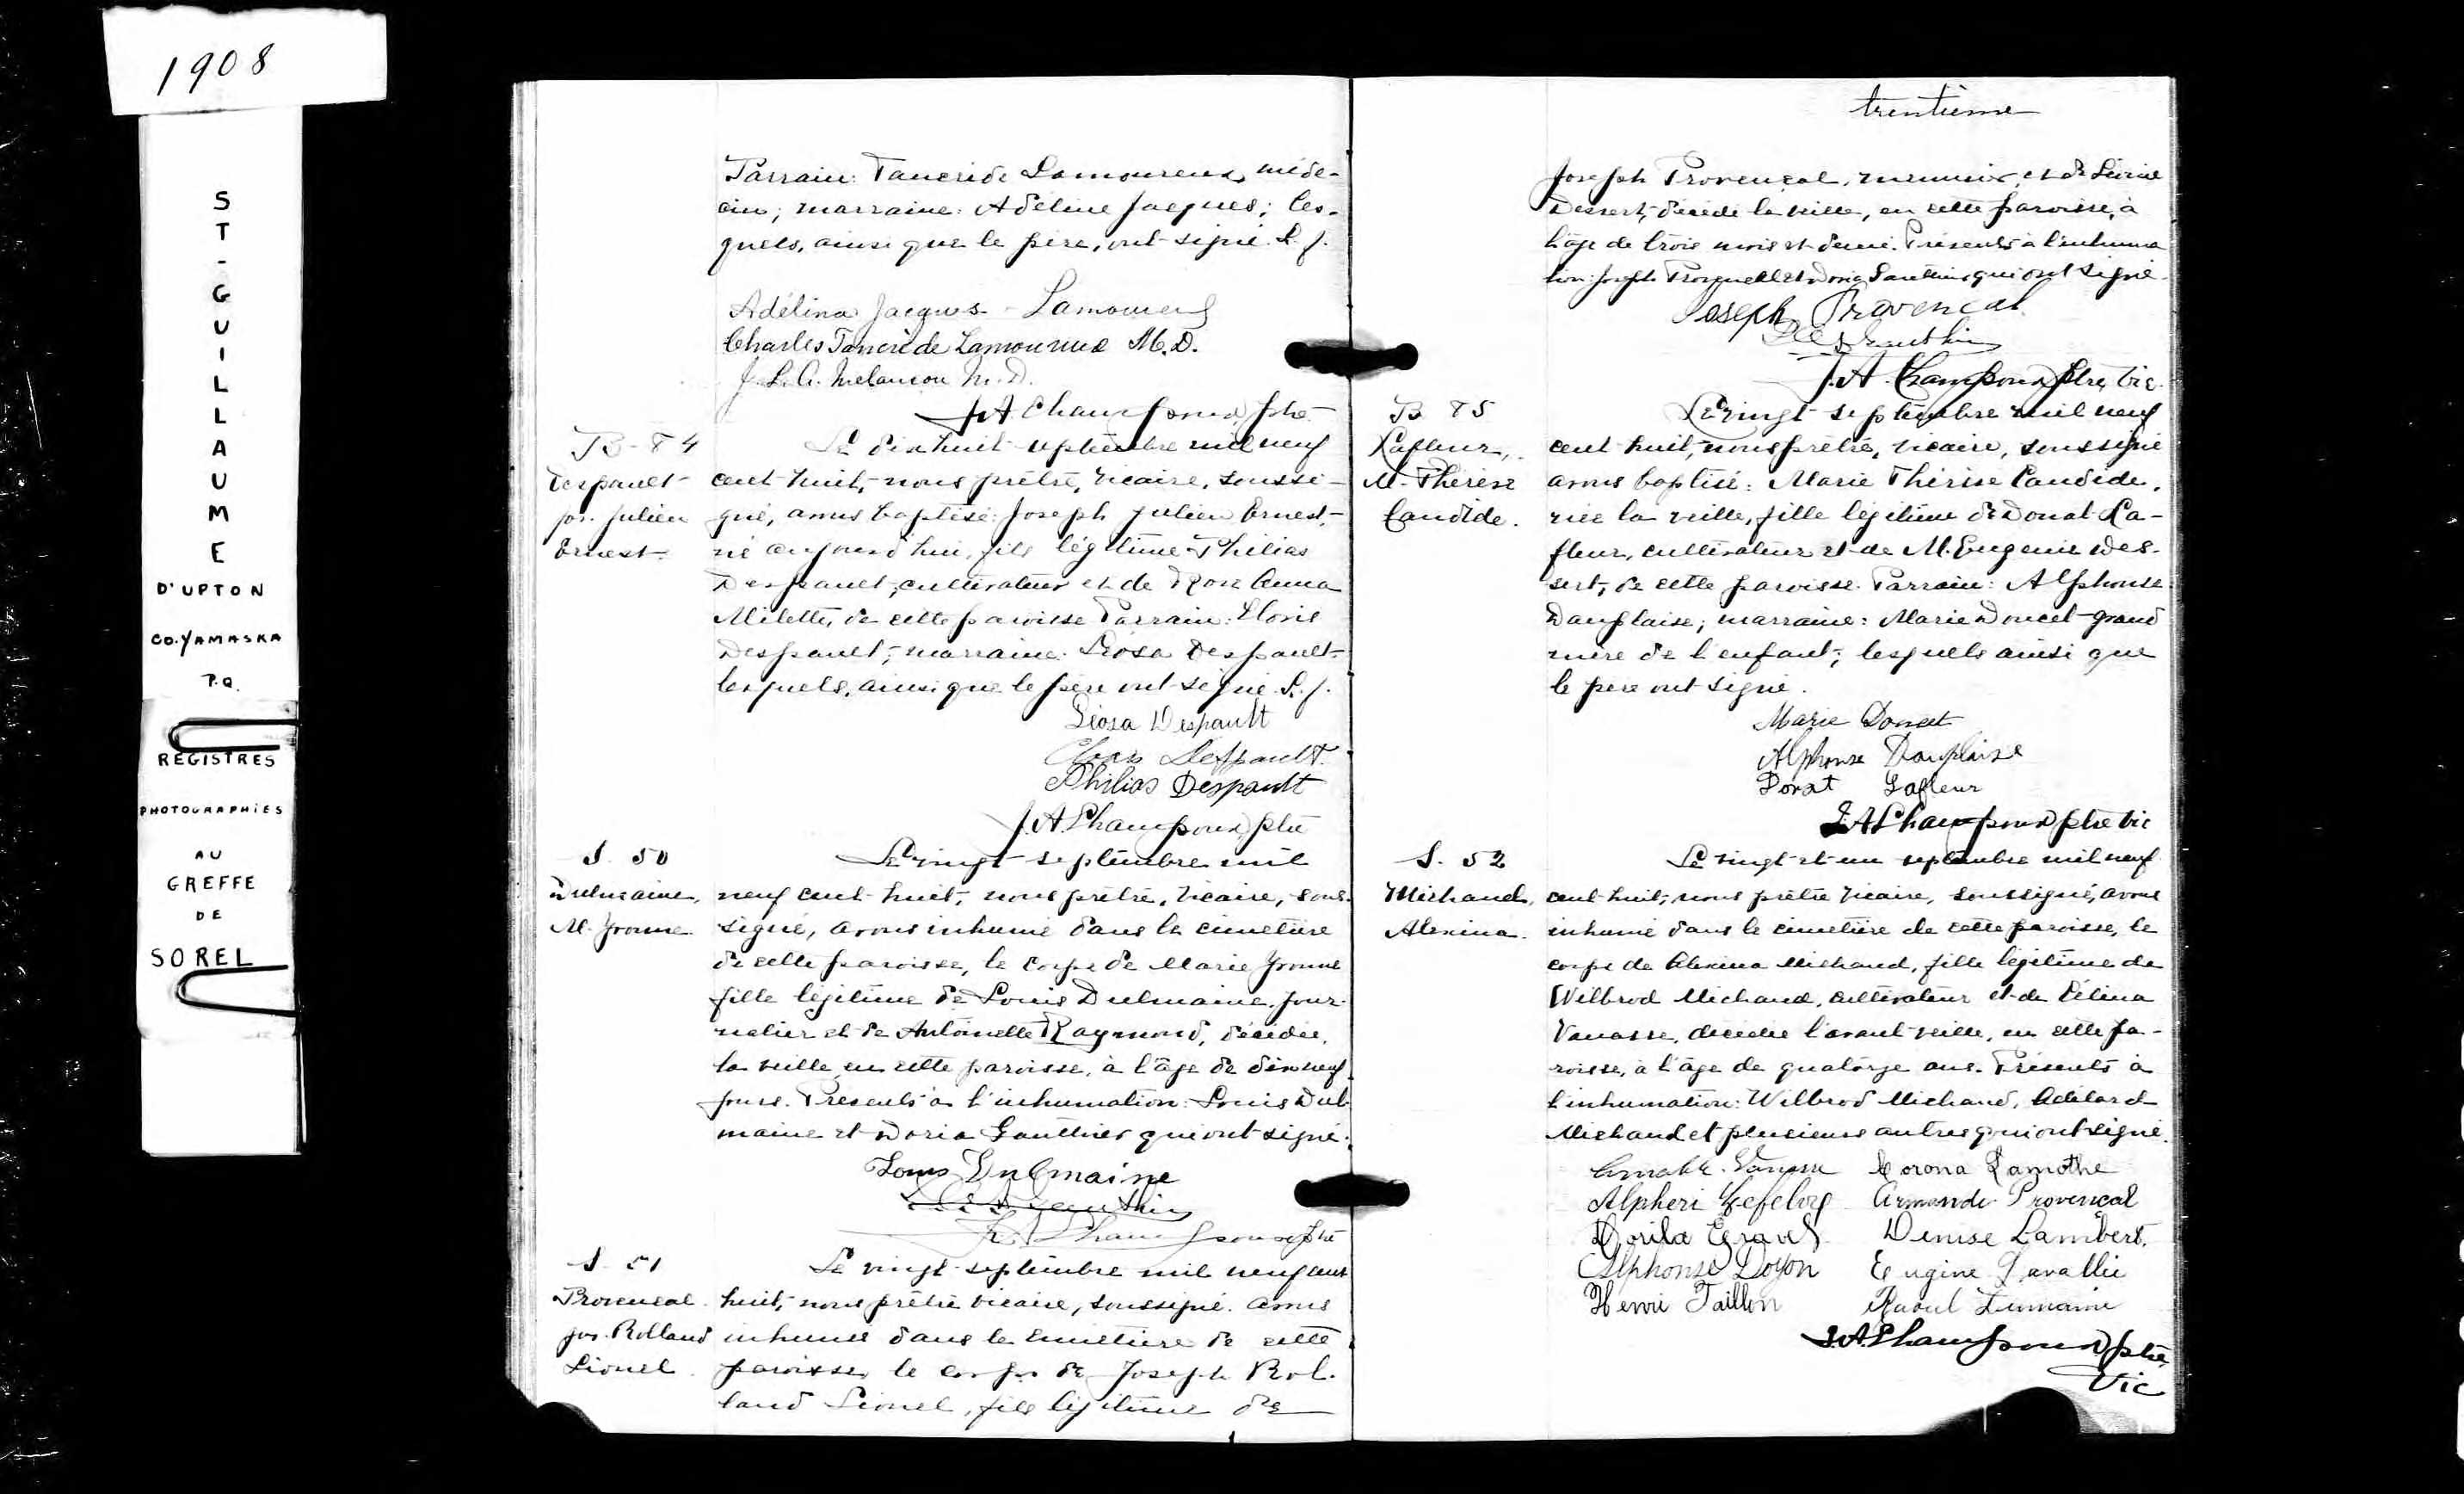 1908
ST-GUILLAUME
D'UPTON
CO. YAMASKA
P.Q.
REGISTRES
PHOTOGRAPHIES
AU
GREFFE
DE
SOREL
Parrain: Tancrède Lamoureux, méde-
cin; marraine: Adeline Jacques; les-
quels, ainsi que le père, ont signé. L. f.
Adélina Jacques - Lamoureux
Charles Tancrède Lamoureux M.D.
J. L. A. Melancon M.D.
J.A. Champoux ptre
B-84
Despault
Jos. Julien
Ernest
Le dix huit septembre mil neuf
cent huit, nous prêtre, vicaire, soussi-
gné, avons baptisé: Joseph Julien Ernest,
né aujourd'hui, fils légitime Philias
Despault, cultivateur et de Rose Anna
Milette, de cette paroisse Parrain:
Despault; marraine: Léosa Despault
lesquels, ainsi que le père ont signé. L. f.
Léosa Despault
Despault
Philias Despault
J.A. Champoux ptre
S. 50
Dulmaine,
M. Yvonne
Le vingt septembre mil
neuf cent huit, nous prêtre, vicaire, sous-
signé, avons inhumé dans le cimetière
de cette paroisse, le corps de Marie Yvonne
fille légitime de Louis Dulmaine, jour-
nalier et de Antoinette Raymond, décédée,
la veille, en cette paroisse, à l'âge de dix neuf
jours. Présents à l'inhumation: Louis Dul-
maine et Doria Gauthier qui ont signé.
Louis Dulmaine
Gauthier
J.A. Champoux ptre
S. 51
Provencal
Jos. Rolland
Lionel
Le vingt septembre mil neuf cent
huit, nous prêtre vicaire, soussigné avons
inhumé dans le cimetière de cette
paroisse, le corps de Joseph Rol-
land Lionel, fils légitime de
trentième
Joseph Provençal, meunier, et de
Dessert, décédé la veille, en cette paroisse, à
l'âge de trois mois et demi. Présents à l'inhuma
tion: Joseph Provençal et Gauthier qui ont signé
Joseph Provencal
Gauthier
J.A. Champoux Ptre, Vic.
B 85
Lafleur,
M. Thérèse
Candide.
Le vingt septembre mil neuf
cent huit, nous prêtre, vicaire, soussigné
avons baptisé: Marie Thérèse Candide,
née la veille, fille légitime de Donat La-
fleur, cultivateur et de M. Eugenie Des-
sert, de cette paroisse. Parrain: Alphonse
Dauplaise; marraine: Marie Doucet grand
mère de l'enfant; lesquels ainsi que
le père ont signé.
Marie Doucet
Alphonse Dauplaise
Donat Lafleur
J.A. Champoux ptre vic
S. 52
Michaud,
Alexina.
Le vingt et un septembre mil neuf
cent huit, nous prêtre vicaire, soussigné, avons
inhumé dans le cimetière de cette paroisse, le
corps de Alexina Michaud, fille légitime de
Wilbrod Michaud, cultivateur et de Célina
Vanasse, décédée l'avant veille, en cette pa-
roisse, à l'âge de quatorze ans. Présents à
l'inhumation: Wilbrod Michaud, Adélard
Michaud et plusieurs autres qui ont signé.
Amable Vanasse Corona Lamothe
Alpheri Lefebvre Armande Provencal
Dorila Gravel Denise Lambert.
Alphonse Doyon Eugène Lavallée
Henri Taillon Raoul Dumaine
J.A. Champoux ptre
Vic